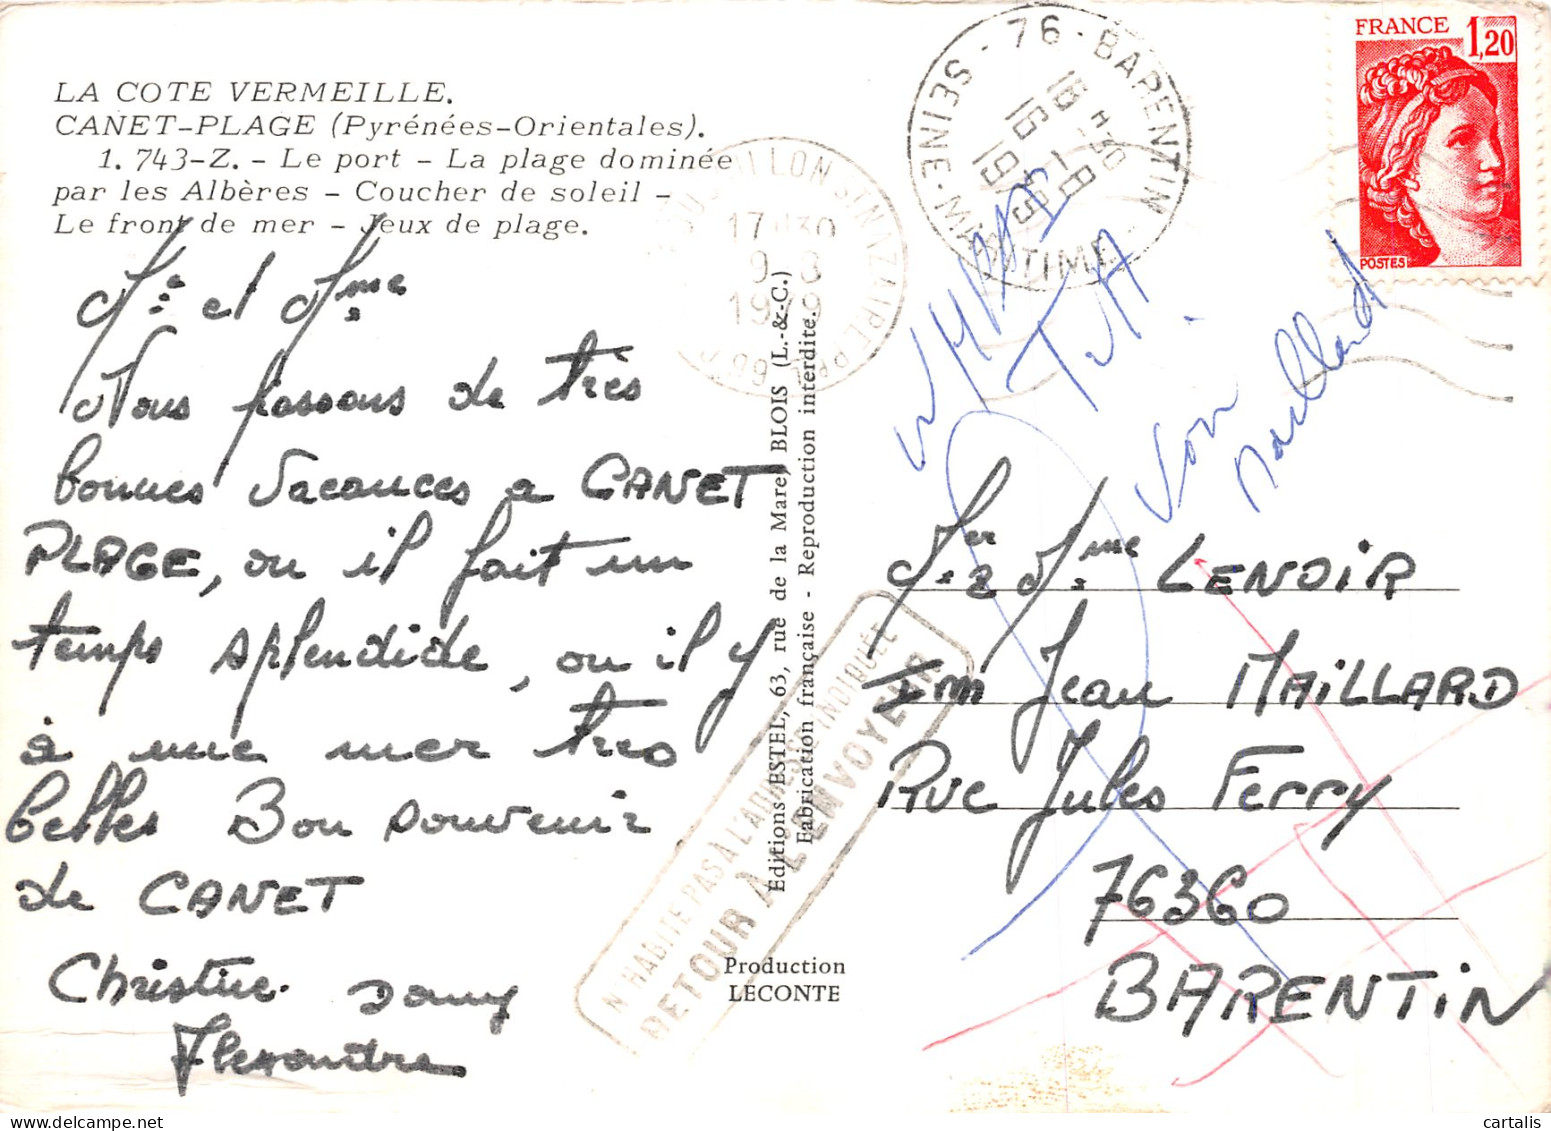 LA COTE VERMEILLE.
CANET-PLAGE (Pyrénées-Orientales).
1. 743-Z. - Le port - La plage dominée
par les Albères - Coucher de soleil -
Le front de mer - Jeux de plage.
Mr et Mme
Nous passons de très
bonnes vacances a CANET
PLAGE, ou il fait un
temps splendide, ou il y
à une mer tres
belles Bon souvenir
de CANET
Christine Danny
Alexandre
17H30
9-8
1979
Editions ESTEL, 63, rue de la Mare, BLOIS (L.-&-C.)
Fabrication française - Reproduction interdite.
Production
LECONTE
N'HABITE PAS A L'ADRESSE INDIQUÉE
RETOUR A L'ENVOYEUR
76 - BARENTIN
SEINE-MARITIME
16 H 30
16 -8
1979
FRANCE 1,20
POSTES
Voir
Maillard
Mer & Mme LENOIR
Im Jean MAILLARD
Rue Jules Ferry
76360
BARENTIN
cartalis